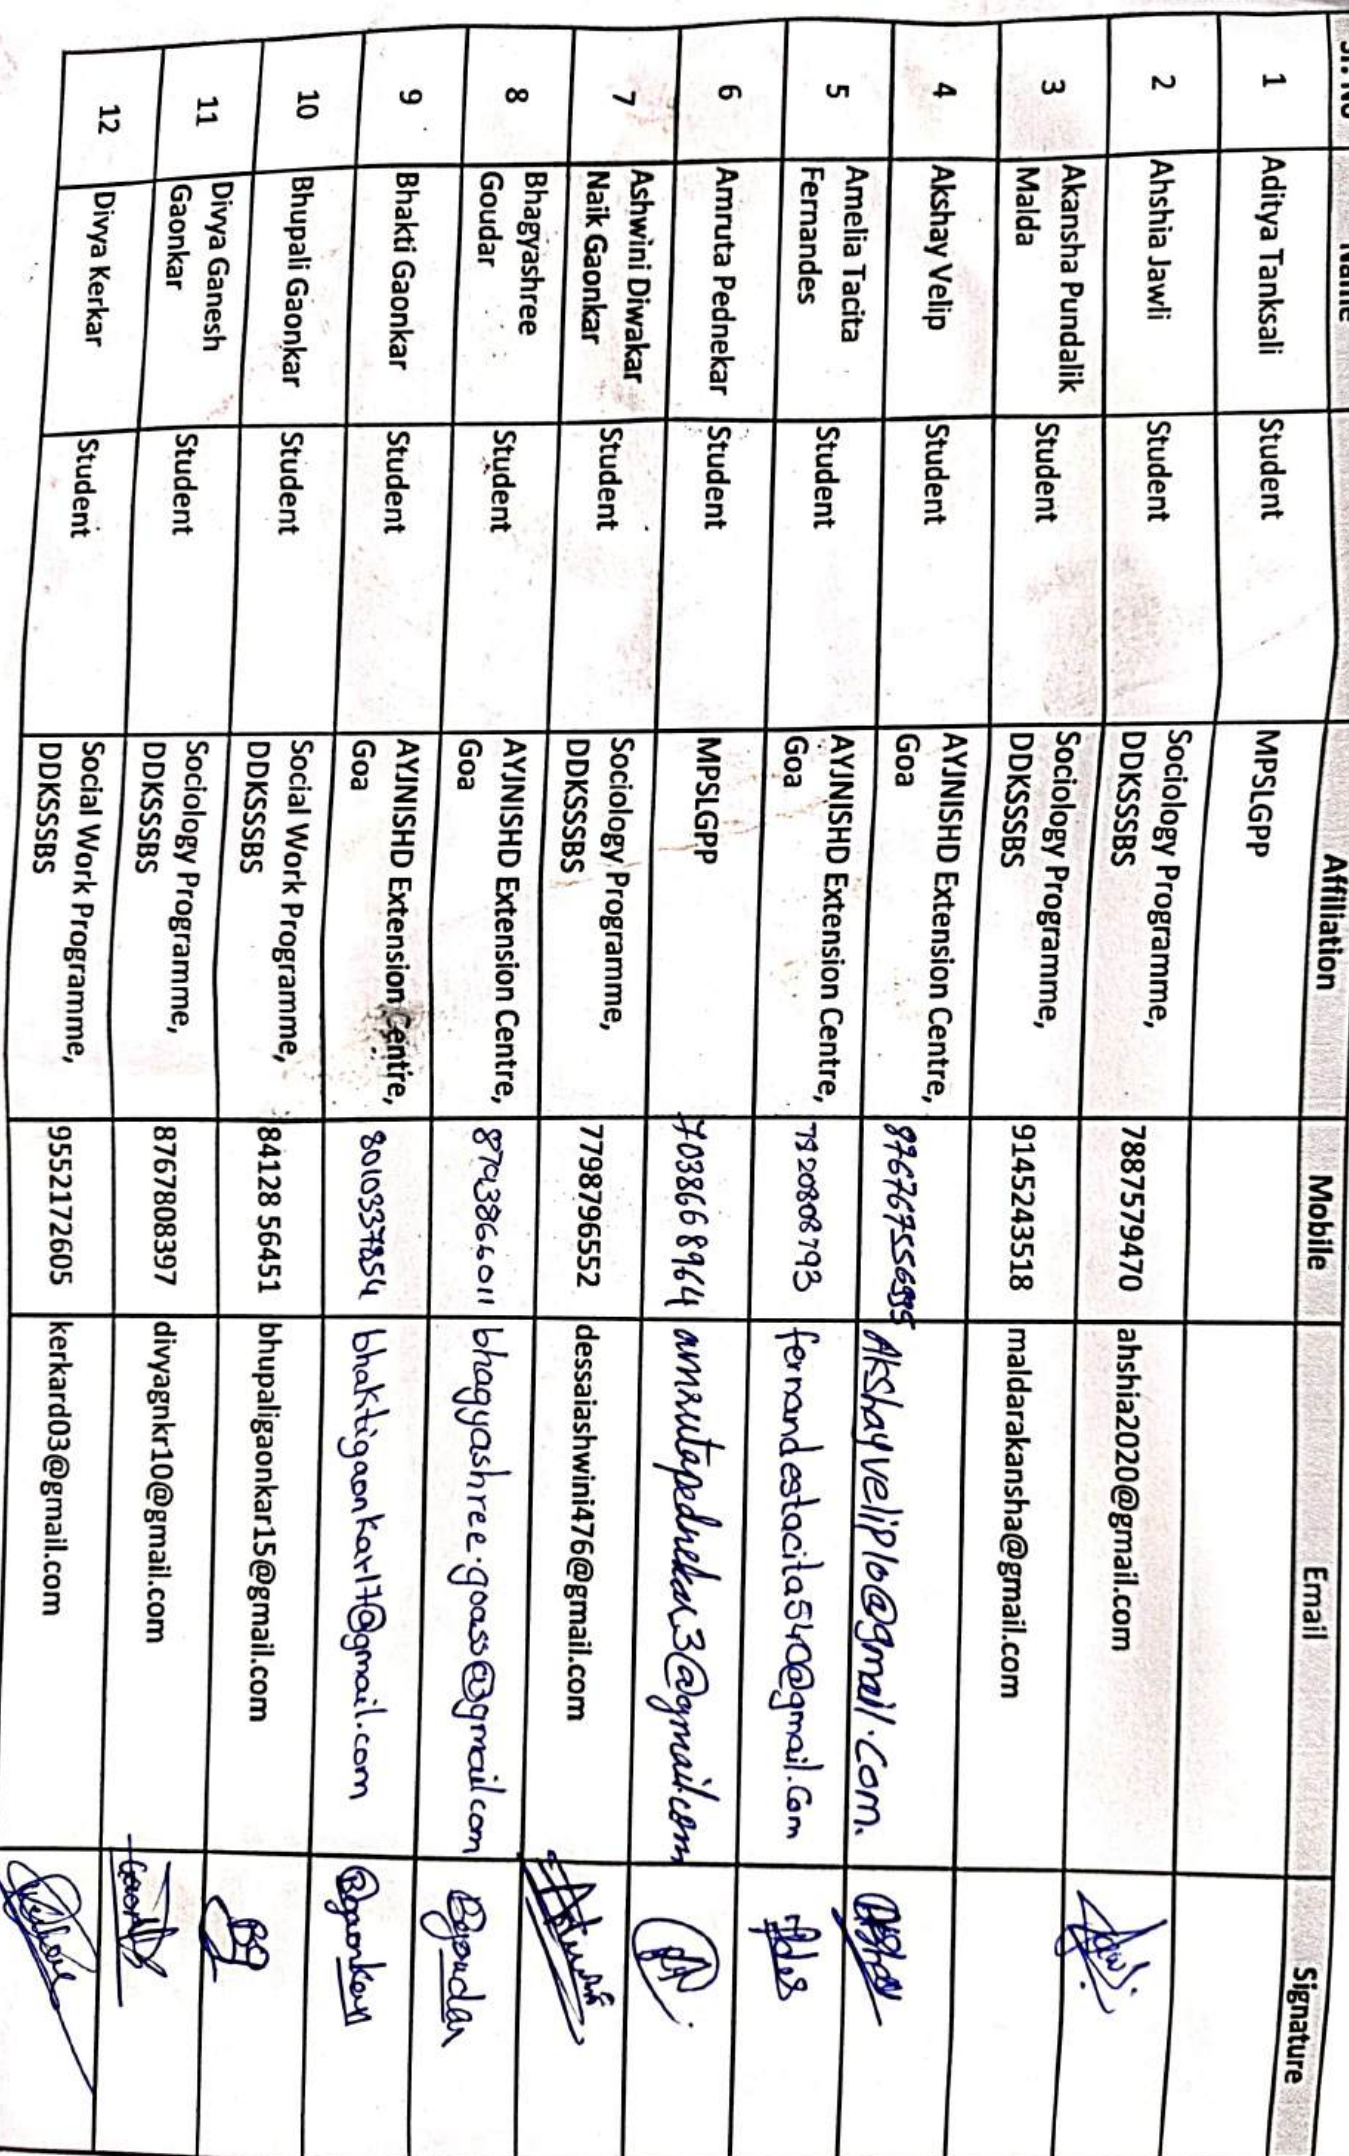 Sr. No Name Affiliation Mobile Email Signature
1 Aditya Tanksali Student MPSLGPP
2 Ahshia Jawli Student Sociology Programme, DDKSSSBS 7887579470 ahshia2020@gmail.com
3 Akansha Pundalik Malda Student Sociology Programme, DDKSSSBS 9145243518 maldarakansha@gmail.com
4 Akshay Velip Student AYJNISHD Extension Centre, Goa Akshayvelip10@gmail.com.
5 Amelia Tacita Fernandes Student AYJNISHD Extension Centre, Goa 7820808793 fernandestacita540@gmail.com
6 Amruta Pednekar Student MPSLGPP 7038668964 amrutapednekar3@gmail.com
7 Ashwini Diwakar Naik Gaonkar Student Sociology Programme, DDKSSSBS 7798796552 dessaiashwini476@gmail.com
8 Bhagyashree Goudar Student AYJNISHD Extension Centre, Goa 8793866011 bhagyashree.goass@gmail.com Bgoudar
9 Bhakti Gaonkar Student AYJNISHD Extension Centre, Goa 8010337854 bhaktigaonkar17@gmail.com Bgaonkar
10 Bhupali Gaonkar Student Social Work Programme, DDKSSSBS 84128 56451 bhupaligaonkar15@gmail.com
11 Divya Ganesh Gaonkar Student Sociology Programme, DDKSSSBS 8767808397 divyagnkr10@gmail.com
12 Divya Kerkar Student Social Work Programme, DDKSSSBS 9552172605 kerkard03@gmail.com